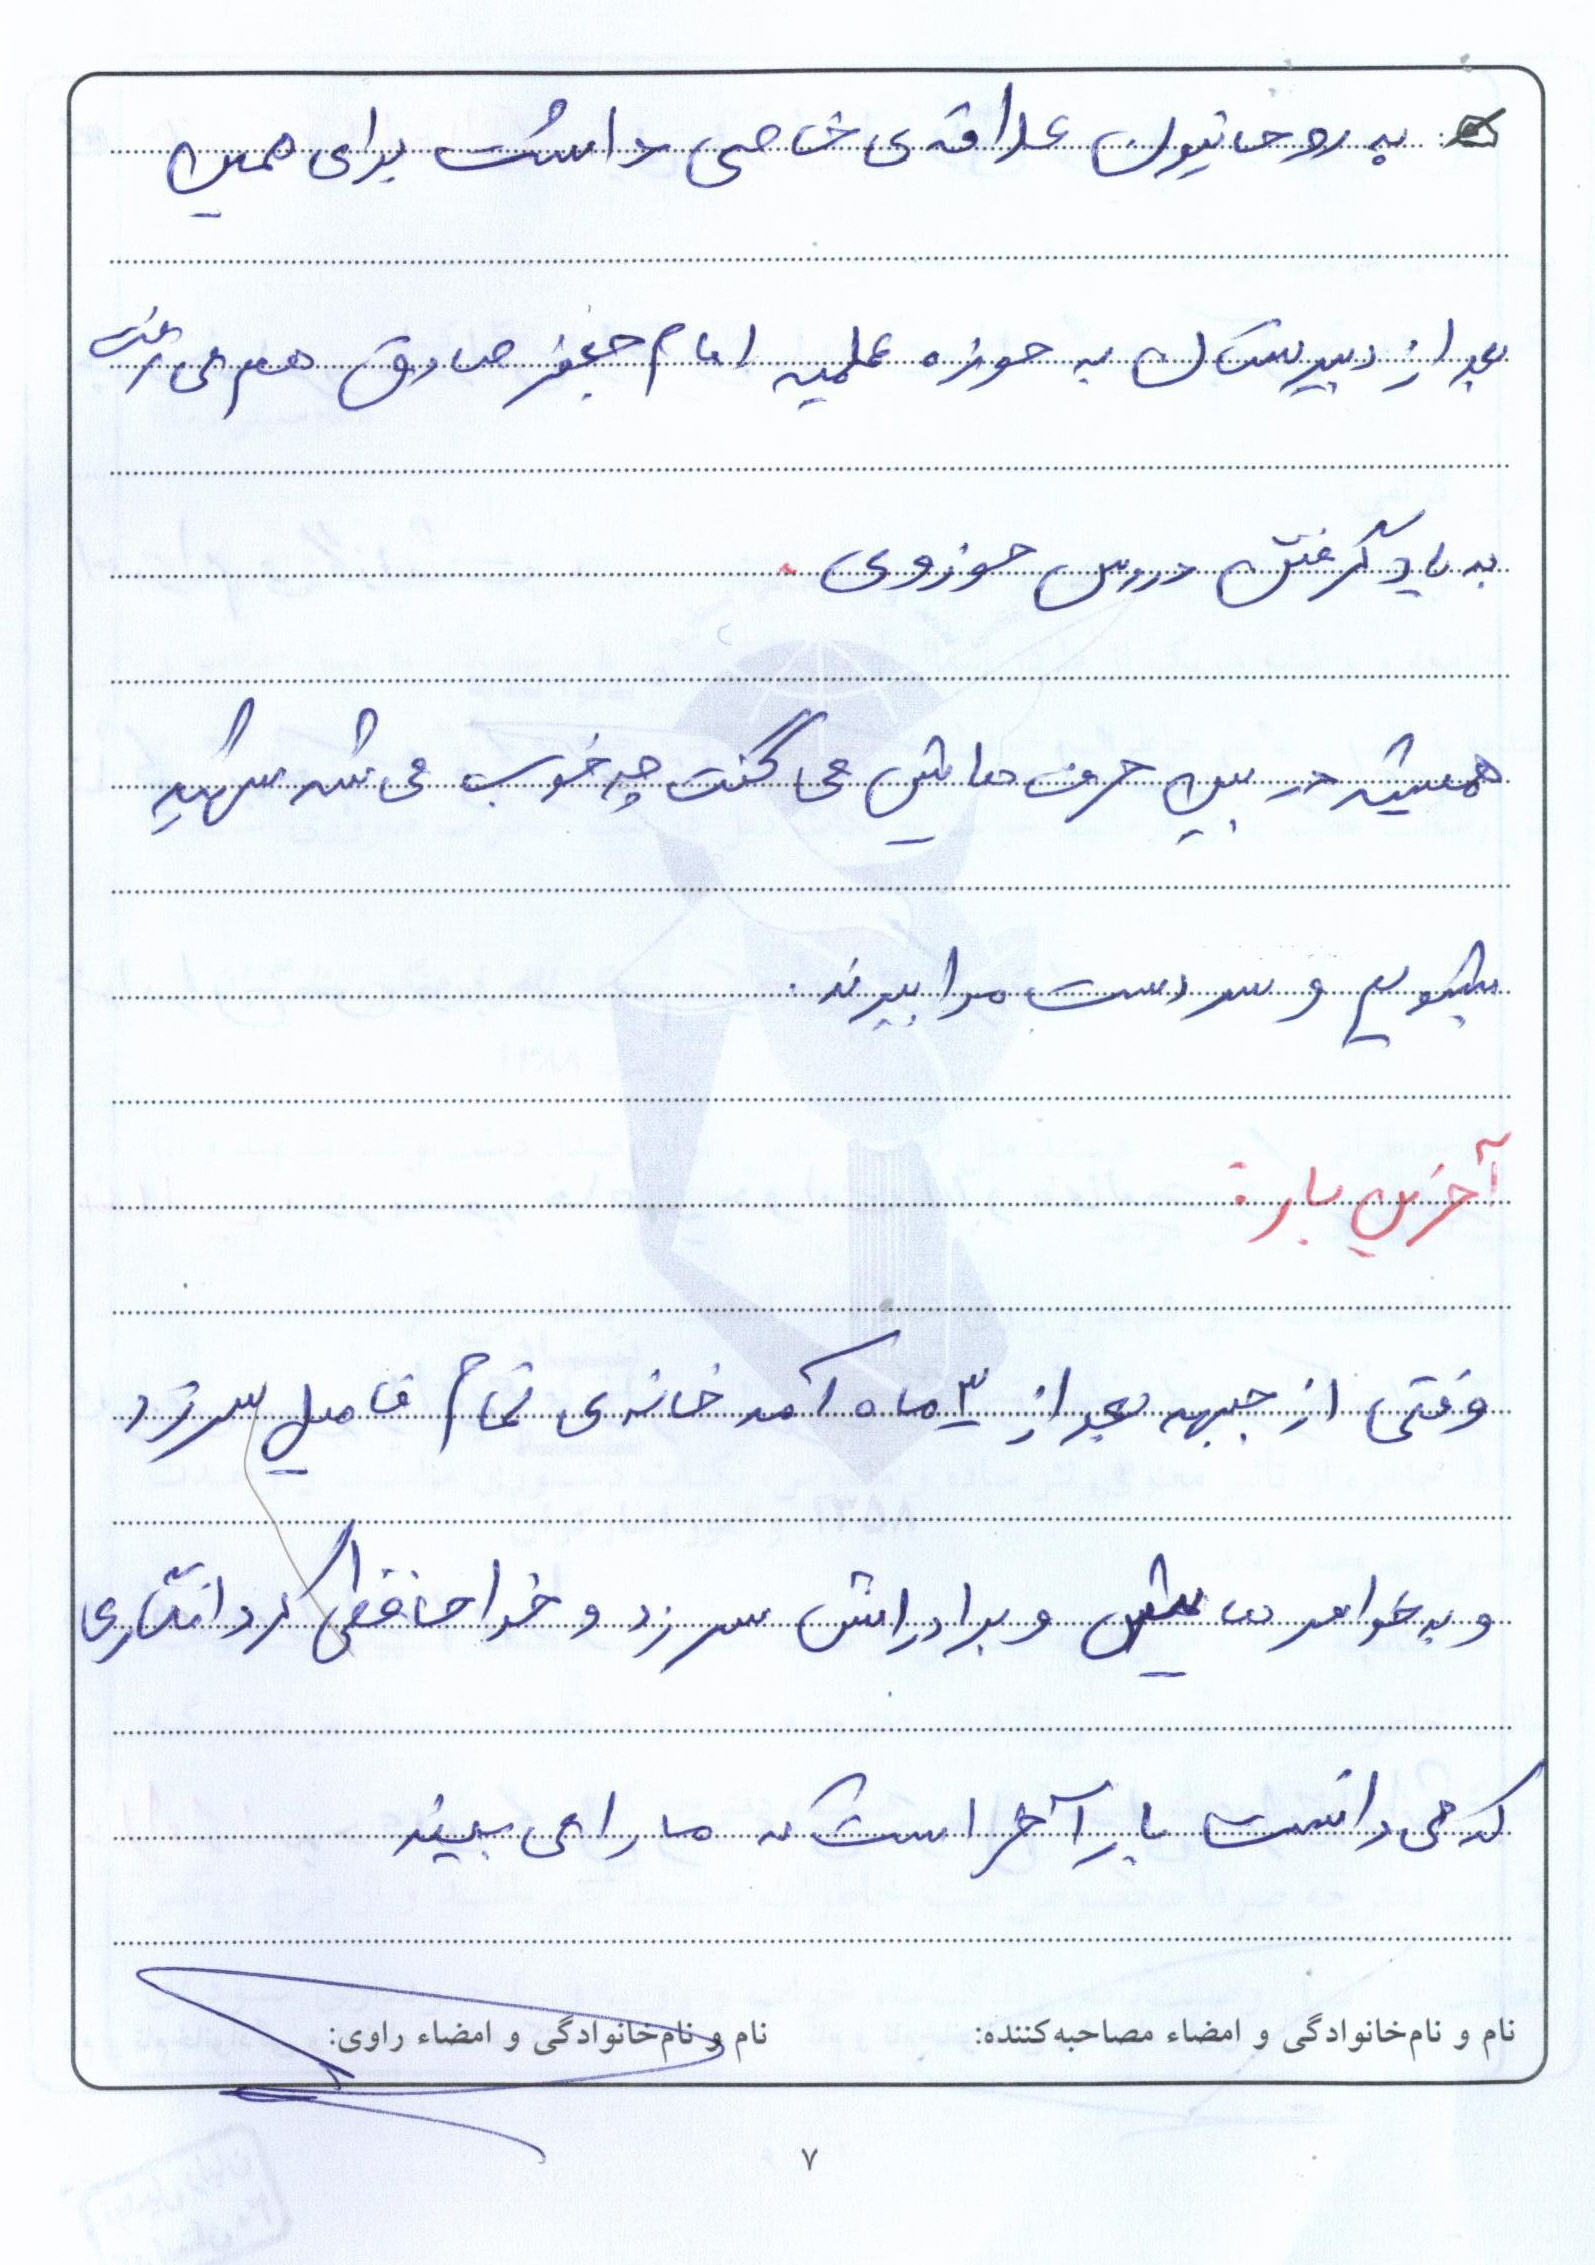 به روحانیون علاقه‌ی خاصی داشت برای همین
بعد از دبیرستان به حوزه علمیه امام جعفر صادق هم می رفت
به یاد گرفتن دروس حوزوی.
همیشه در بین حرف هایش می گفت چه خوب می شد شهید
بشویم و سر دست مرا ببرند.
آخرین بار:
وقتی از جبهه بعد از ۳ ماه آمد خانه‌ی تمام فامیل سر زد
و به خواهر هایش و برادرانش سر زد و خداحافظی کرد انگاری
که می دانست بار آخر است که ما را می بیند
نام و نام‌خانوادگی و امضاء مصاحبه‌کننده:
نام و نام‌خانوادگی و امضاء راوی:
۷